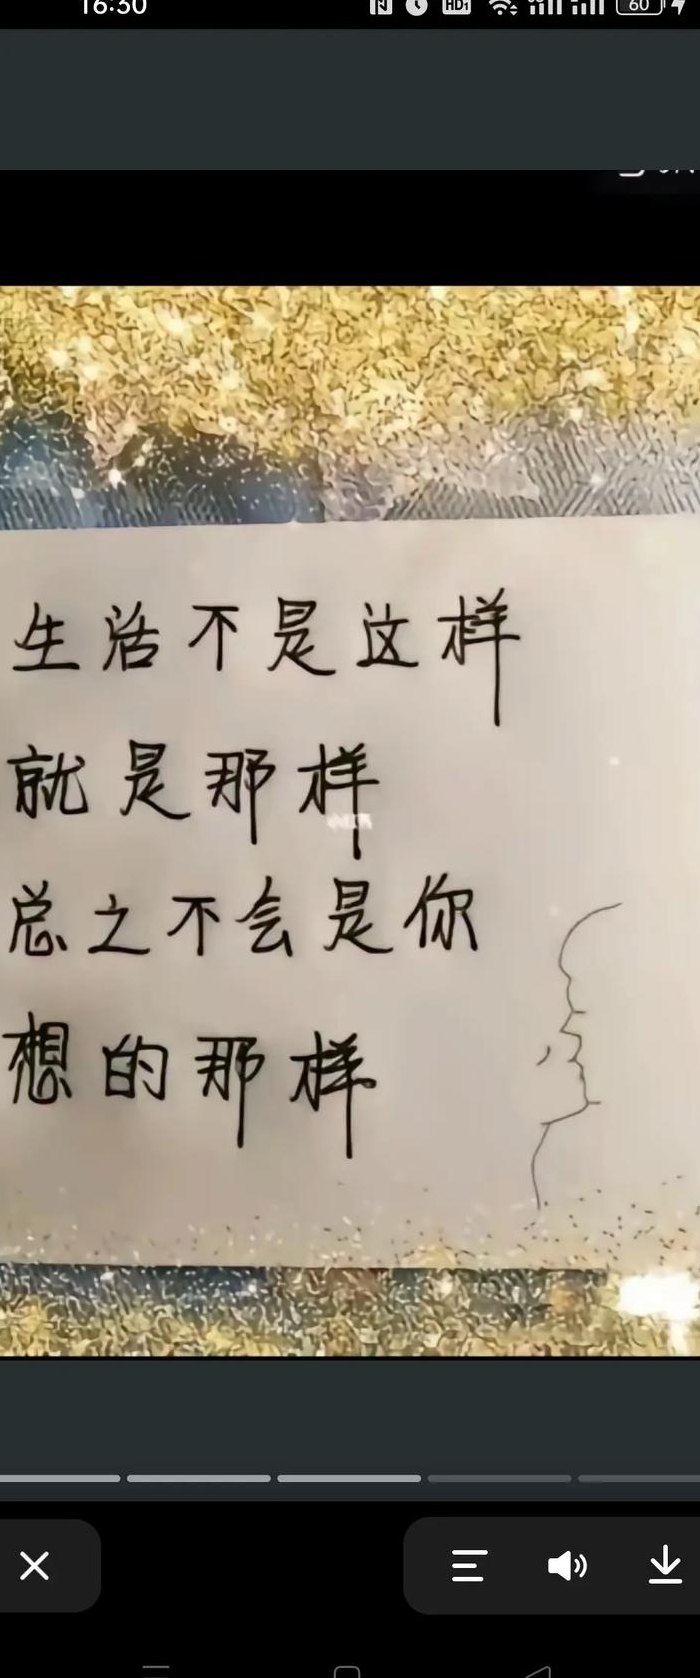 16:30
HD1
60
生活不是这样
就是那样
总之不会是你
想的那样